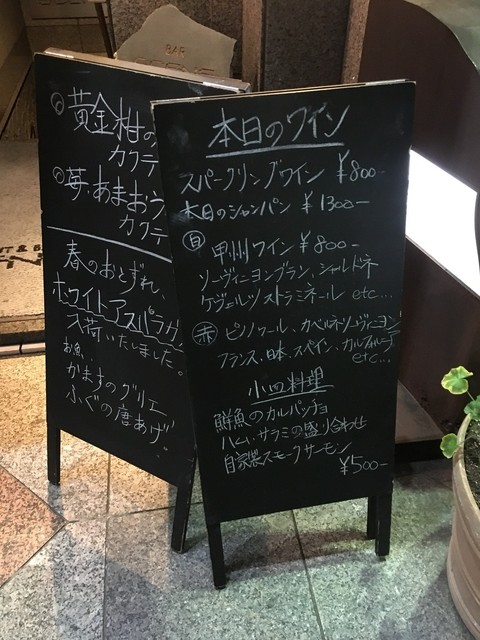 BAR
◎黄金柑の
カクテ
◎苺・あまおう
カクテ
春のおとずれ、
ホワイトアスパラガ
入荷いたしました。
お魚、
かますのグリエ
ふぐの唐あげ
本日のワイン
スパークリングワイン ¥800-
本日のシャンパン ¥1300-
白 甲州ワイン ¥800-
ソーヴィニヨンブラン、シャルドネ
ゲヴェルツストラミネール etc...
赤 ピノノワール、カベルネソーヴィニヨン
フランス、日本、スペイン、カルフォルニア
etc...
小皿料理
鮮魚のカルパッチョ
ハム、サラミの盛り合わせ
自家製スモークサーモン
¥500-